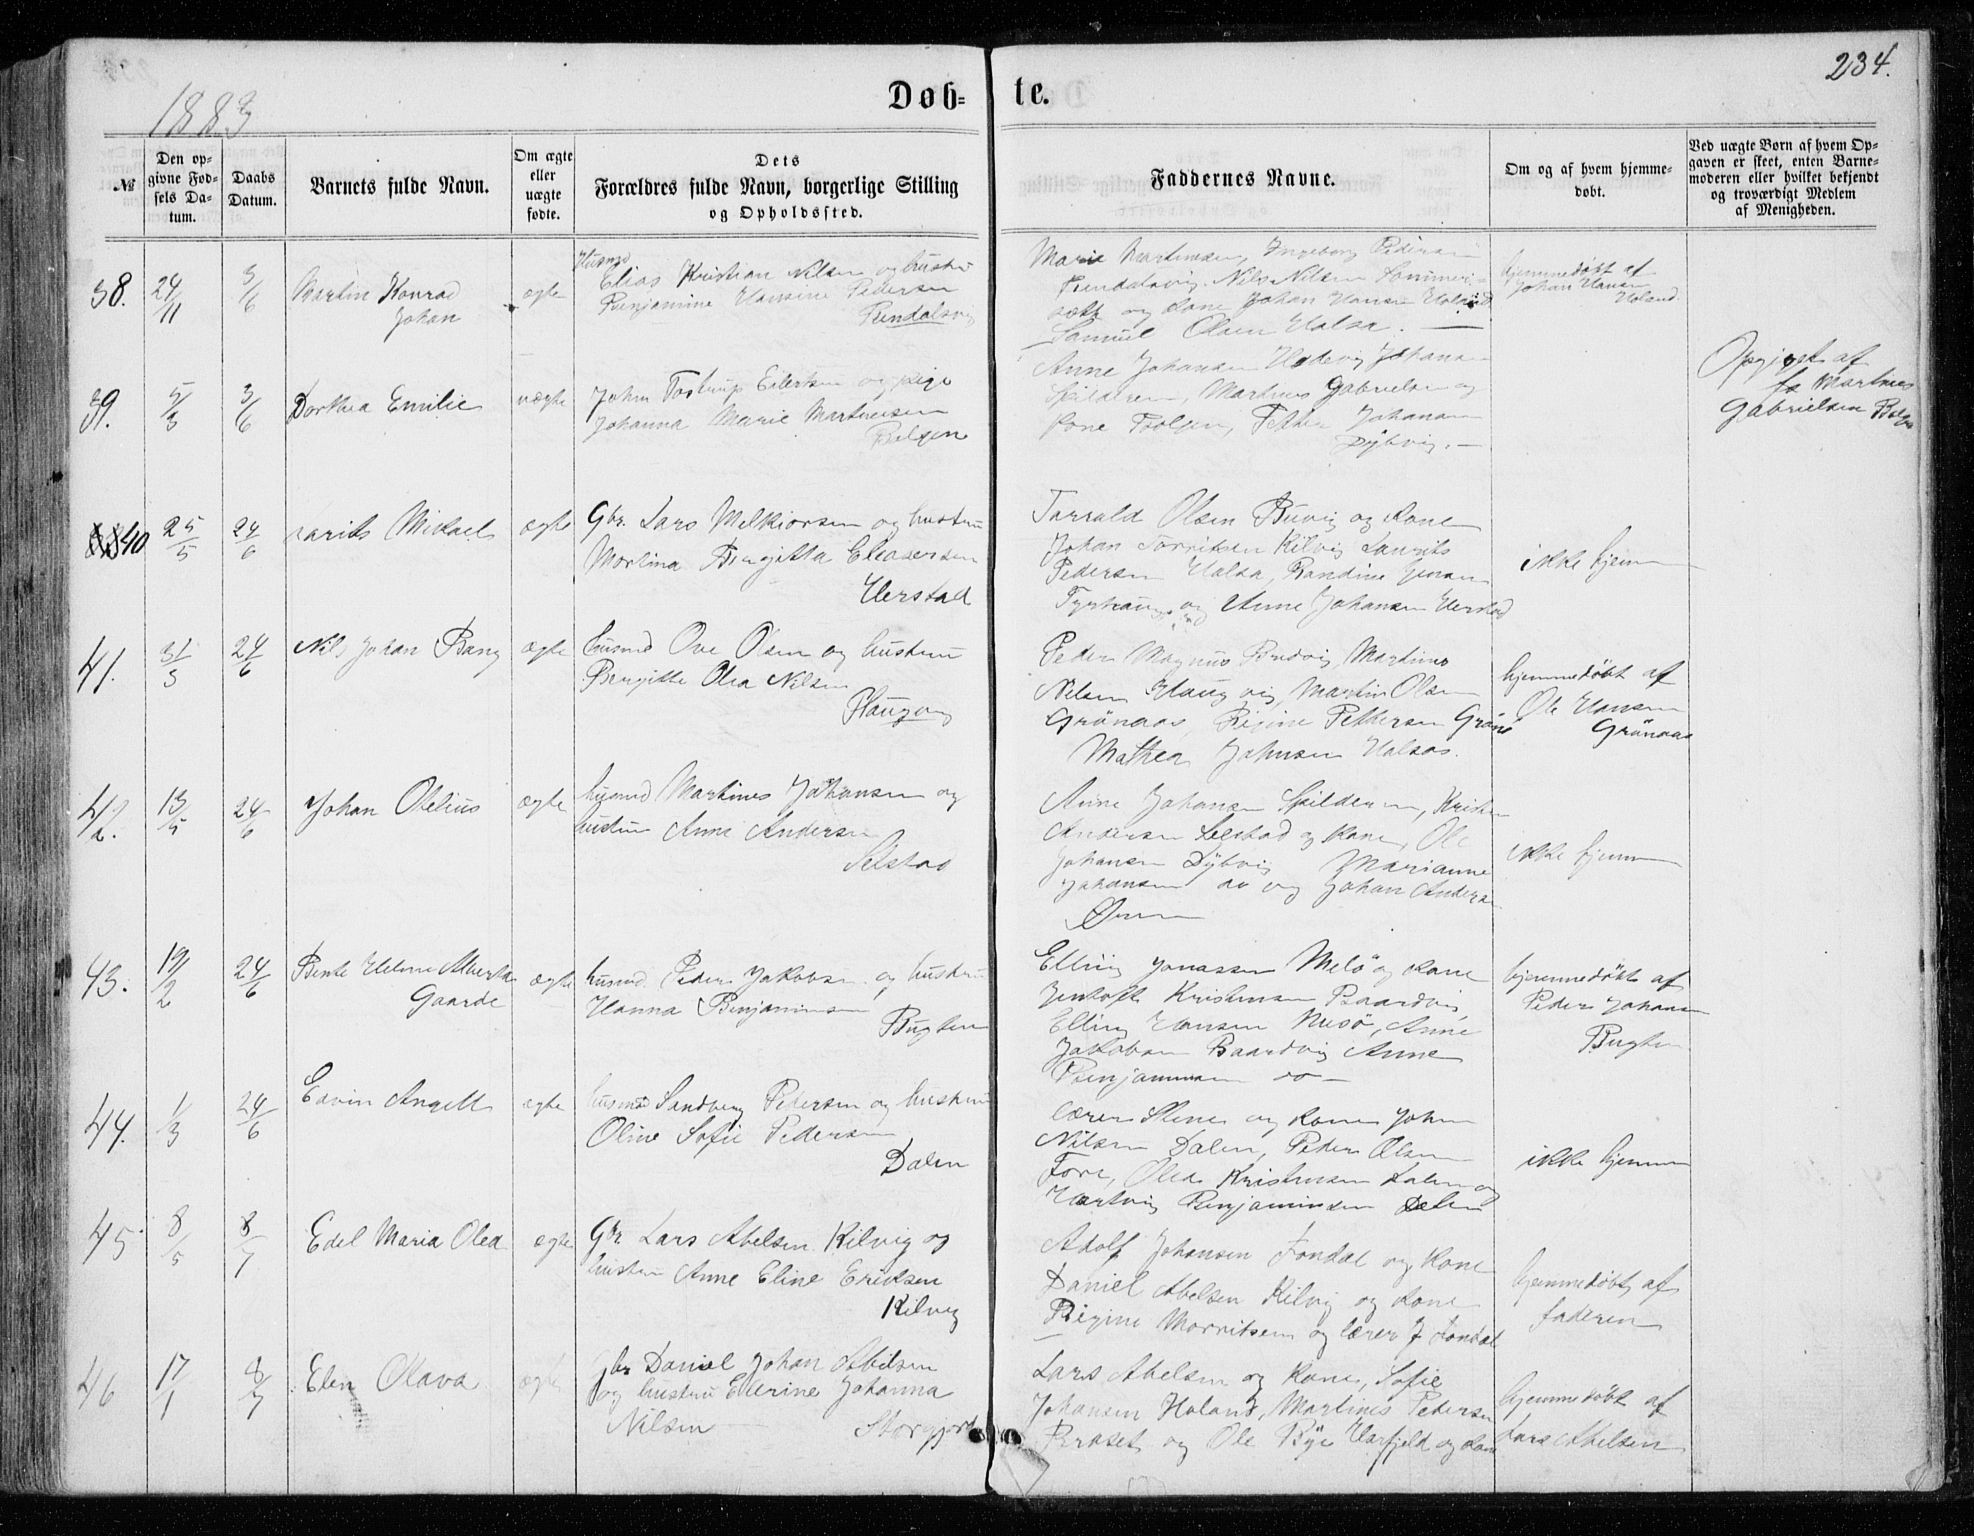 234.
1883
Døb-
te.
№
Den op-
givne Fød-
sels Da-
tum.
Daabs
Datum.
Barnets fulde Navn.
Om ægte
eller
uægte
fødte.
Dets
Forældres fulde Navn, borgerlige Stilling
og Opholdssted.
Faddernes Navne.
Om og af hvem hjemme-
døbt.
Ved uægte Børn af hvem Op-
gaven er skeet, enten Barne-
moderen eller hvilket bekjendt
og troværdigt Medlem
af Menigheden.
38.
24/11
3/6
Martin Konrad
Johan
ægte
Husmd
Elias Kristian Nilsen og hustru
Benjamine Hansine Pedersen
Marie Martinsen, Ingeborg Pedersen
Nils Nilsen
og Kone Johan Hansen Haland
Samuel Olsen Halsa.
hjemmedøbt af
Johan Hansen
Haland
39.
5/3
3/6
Dorthea Emilie
uægte
Johan Tostrup Eilertsen og pige
Johanna Marie Martinesen
Bolgen
Anne Johansen Hedevig Johansen
Spilderen, Martines Gabrielsen og
Kone Bolgen, Petter Johansen
Dybvig.
Opgivet af
Martines
Gabrielsen
40
25/5
24/6
Mikael
ægte
Gbr. Lars Melkiorsen og hustru
Martina Birgitta Eleasersen
Herstad
Tarrald Olsen Buvig og Kone
Johan Kilvig Laurits
Pedersen Halsa, Randine Jensen
og Anne Johansen Herstad
ikke hjem
41.
31/3
24/6
Nils Johan Bang
ægte
husmd Ove Olsen og hustru
Birgitte Olea Nilsen
Haugvig
Peder Magnus Martines
Nilsen Haugvig, Martin Olsen
Grönaas, Regine Pettersen
Mathea Johnsen Halsos.
hjemmedøbt af
Ole Hansen
Grönaas
42.
13/5
24/6
Johan Otelius
ægte
husmd Martines Johansen og
hustru Anne Andersen
Selstad
Anne Johansen Spilderen,
Andersen Selstad og Kone, Ole
Johansen Dybvig Marianne
Johansen do og Johan Andersen
ikke hjem
43.
19/2
24/6
Bente Helene Alberta
Gaarde
ægte
husmd. Peder Jakobsen og hustru
Hanna Benjaminsen
Bugten
Elling Jonassen Melö og Kone
Jentoft Kristensen Baardvig
Elling Hansen Anne
Jakobsen Baardvig Anne
Benjaminsen do
hjemmedøbt af
Peder Johansen
Bugten
44.
1/3
24/6
Edvin Angell
ægte
husmd Sandberg Pedersen og hustru
Oline Sofie Pedersen
Dalen
Lærer Stene og Kone John
Nilsen Dalen, Peder Olsen
Fore, Olea Kristensen Dalen og
Hartvig Benjaminsen Dalen
ikke hjemme
45
8/5
8/7
Edel Maria Olea
ægte
Gbr. Lars Abelsen Kilvig og
hustru Anne Eline Eriksen
Kilvig
Adolf Johansen Fondal og Kone
Daniel Abelsen Kilvig og Kone
Regine Morritsen og lærer J Fondal
hjemmedøbt af
faderen
46
17/1
8/7
Elen Olava
ægte
Gbr Daniel Johan Abelsen
og hustru Ellerine Johanna
Nilsen
Storgjord
Lars Abelsen og Kone, Sofie
Johansen Haland, Martines Pedersen
Braset og Ole Harfjeld og Kone
hjemmedøbt af
Lars Abelsen